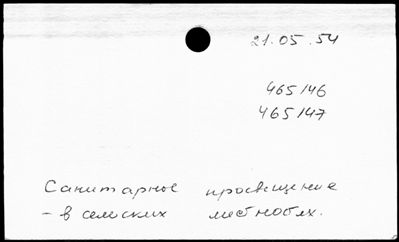 21.05.54
465146
465147
Санитарное просвещение
- в сельских местностях.